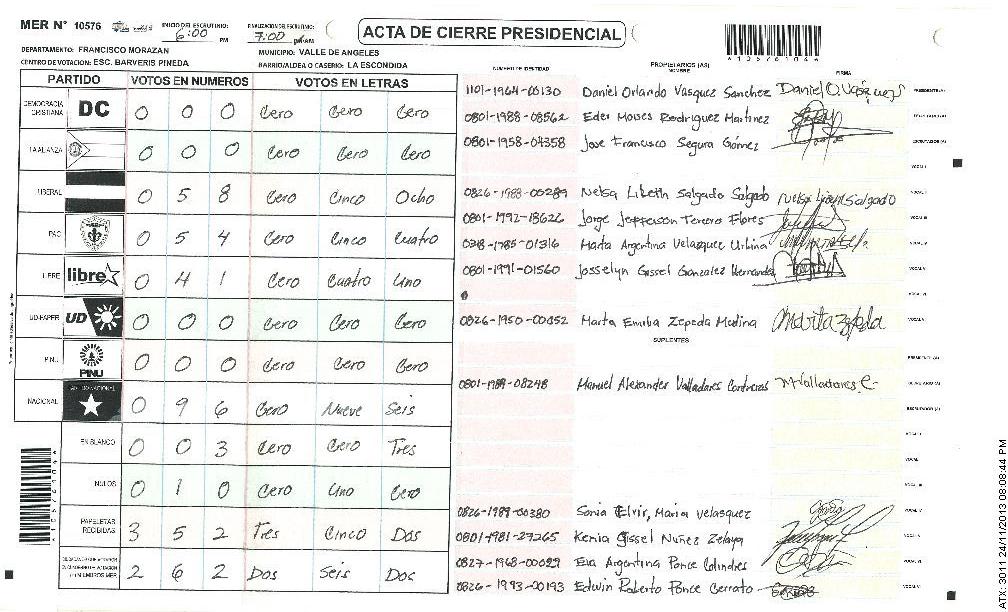 MER N° 10576
INICIO DEL ESCRUTINIO: 6:00 PM
FINALIZACION DEL ESCRUTINIO: 7:00 AM
ACTA DE CIERRE PRESIDENCIAL
DEPARTAMENTO: FRANCISCO MORAZAN
MUNICIPIO: VALLE DE ANGELES
CENTRO DE VOTACION: ESC. BARVERIS PINEDA
BARRIO/ALDEA O CASERIO: LA ESCONDIDA
PARTIDO VOTOS EN NUMEROS VOTOS EN LETRAS
DEMOCRACIA CRISTIANA DC 0 0 0 Cero Cero Cero
LA ALIANZA 0 0 0 Cero Cero Cero
LIBERAL 0 5 8 Cero Cinco Ocho
PAC 0 5 4 Cero Cinco Cuatro
LIBRE libre 0 4 1 Cero Cuatro Uno
UD-FAPER UD 0 0 0 Cero Cero Cero
PINU PINU 0 0 0 Cero Cero Cero
NACIONAL 0 9 6 Cero Nueve Seis
EN BLANCO 0 0 3 Cero Cero Tres
NULOS 0 1 0 Cero Uno Cero
PAPELETAS RECIBIDAS 3 5 2 Tres Cinco Dos
2 6 2 Dos Seis Dos
NUMERO DE IDENTIDAD
PROPIETARIOS (AS)
NOMBRE
FIRMA
1101-1964-00130 Daniel Orlando Vasquez Sanchez Daniel O. Vasquez S PRESIDENTE(A)
0801-1988-08562 Eder Moises Rodriguez Martinez
0801-1958-04358 Jose Francisco Segura Gómez ESCRUTADOR(A)
VOCAL I
0826-1988-00289 Nelsa Libeth Salgado Salgado VOCAL II
0801-1992-18626 Jorge Jefferson Tercero Flores VOCAL III
0318-1985-01316 Marta Argentina Velasquez Urbina VOCAL IV
0801-1991-01560 Josselyn Gissel Gonzalez Hernandez VOCAL V
0826-1950-00052 Marta Emilia Zepeda Medina Marta Zepeda
SUPLENTES
PRESIDENTE(A)
0801-1989-08248 Manuel Alexander Valladares Contreras MValladares C
0826-1989-00380 Sonia Elvir, Maria Velasquez
0801-1981-27265 Kenia Gissel Nuñez Zelaya
0827-1968-00029 Eva Argentina Ponce Colindres
0826-1993-00193 Edwin Roberto Ponce Cerrato
ATX-3011 24/11/2013 08:08:44 PM